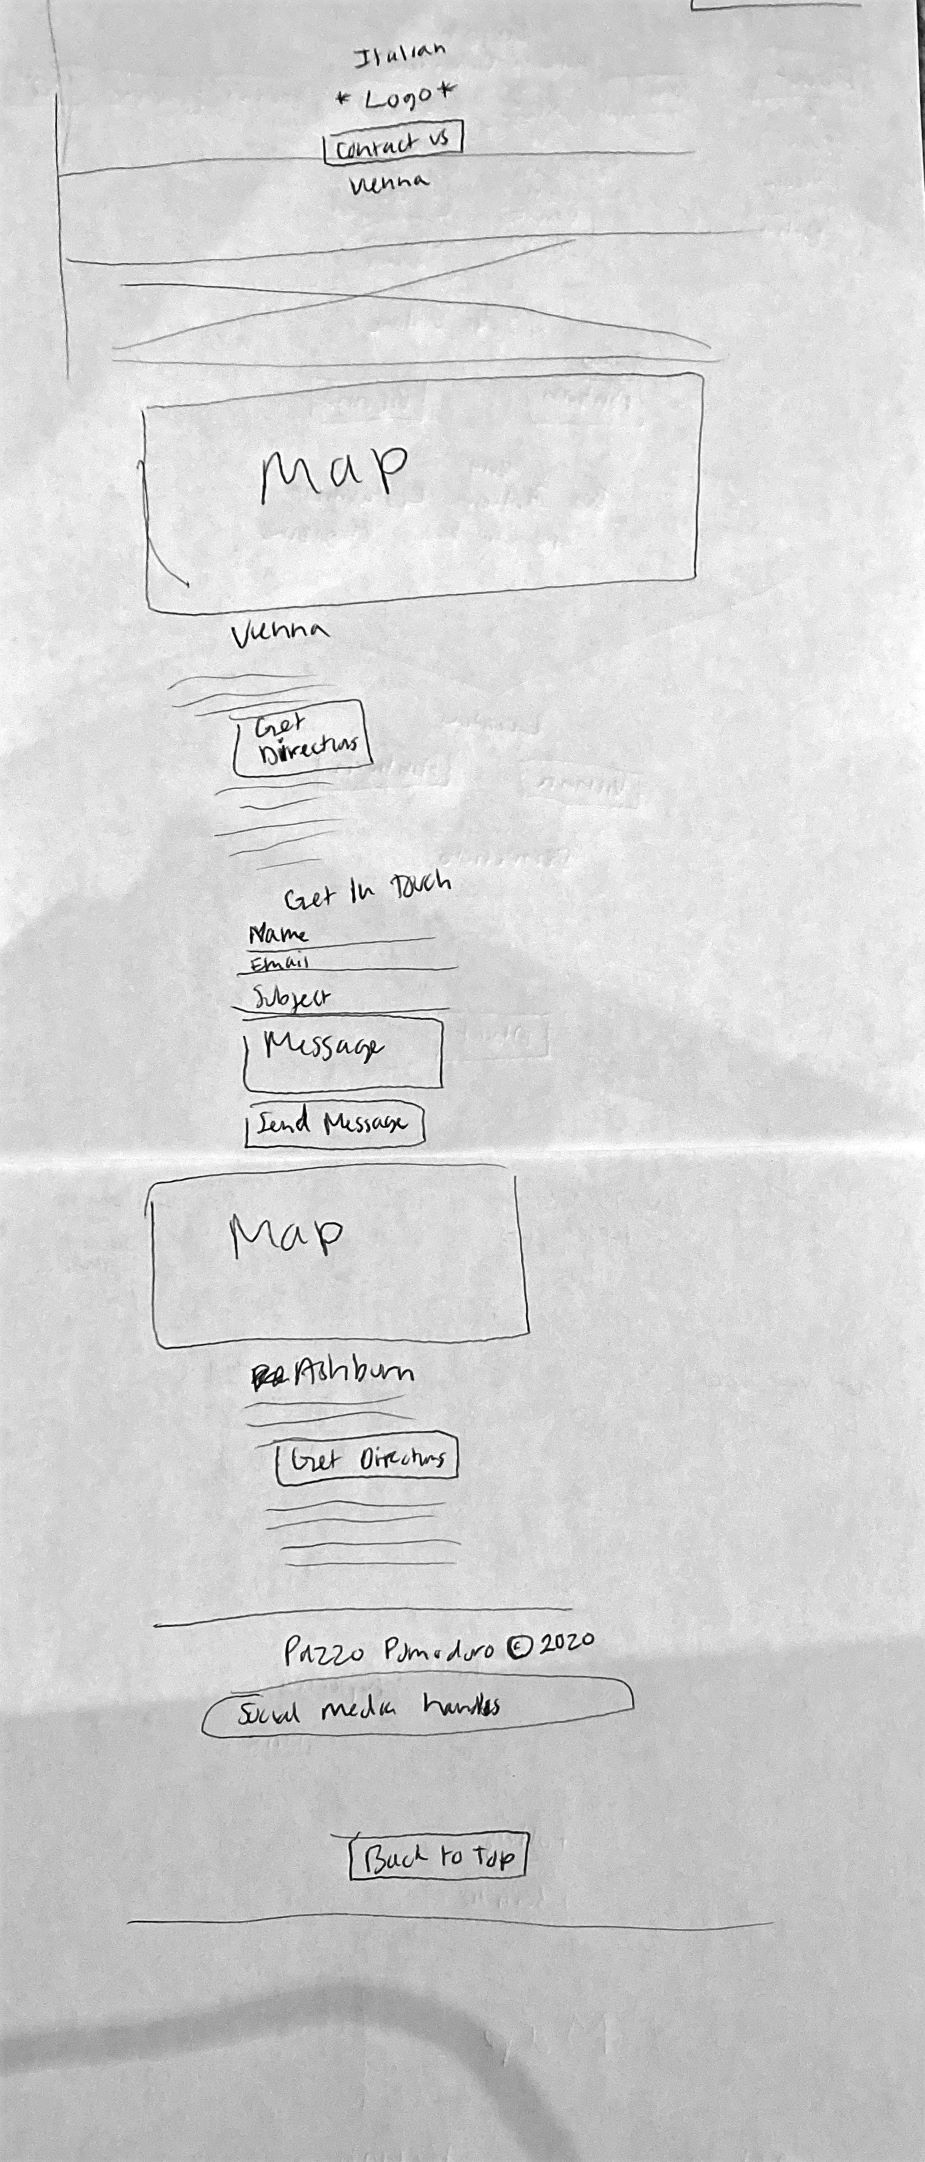 Italian
* Logo *
Contact Us
Vienna
Map
Vienna
Get
Directions
Get In Touch
Name
Email
Subject
Message
Send Message
Map
Ashburn
Get Directions
Pazzo Pomodoro © 2020
Social media handles
Back to Top